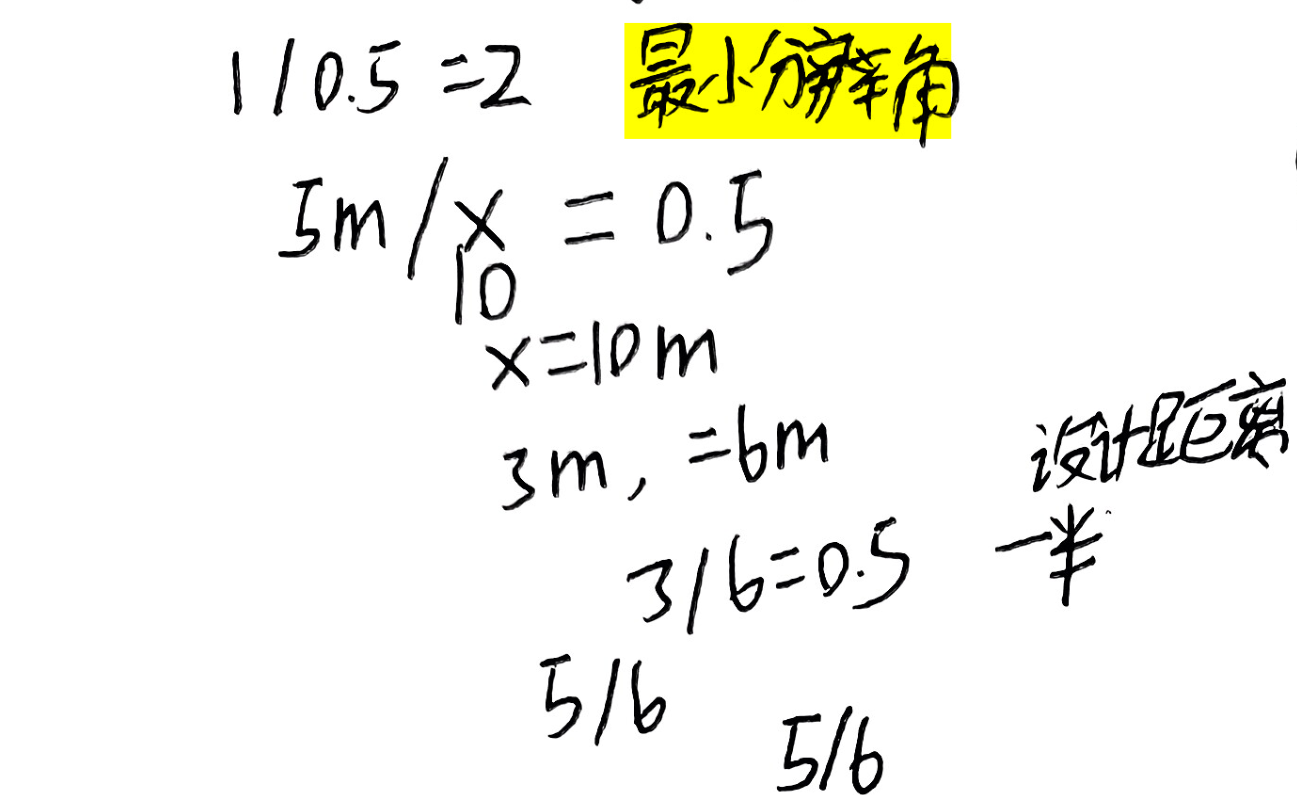 1/0.5=2 最小分辨角
5m/x=0.5
10
x=10m
3m,=6m 设计距离
3/6=0.5 一半
5/6
5/6